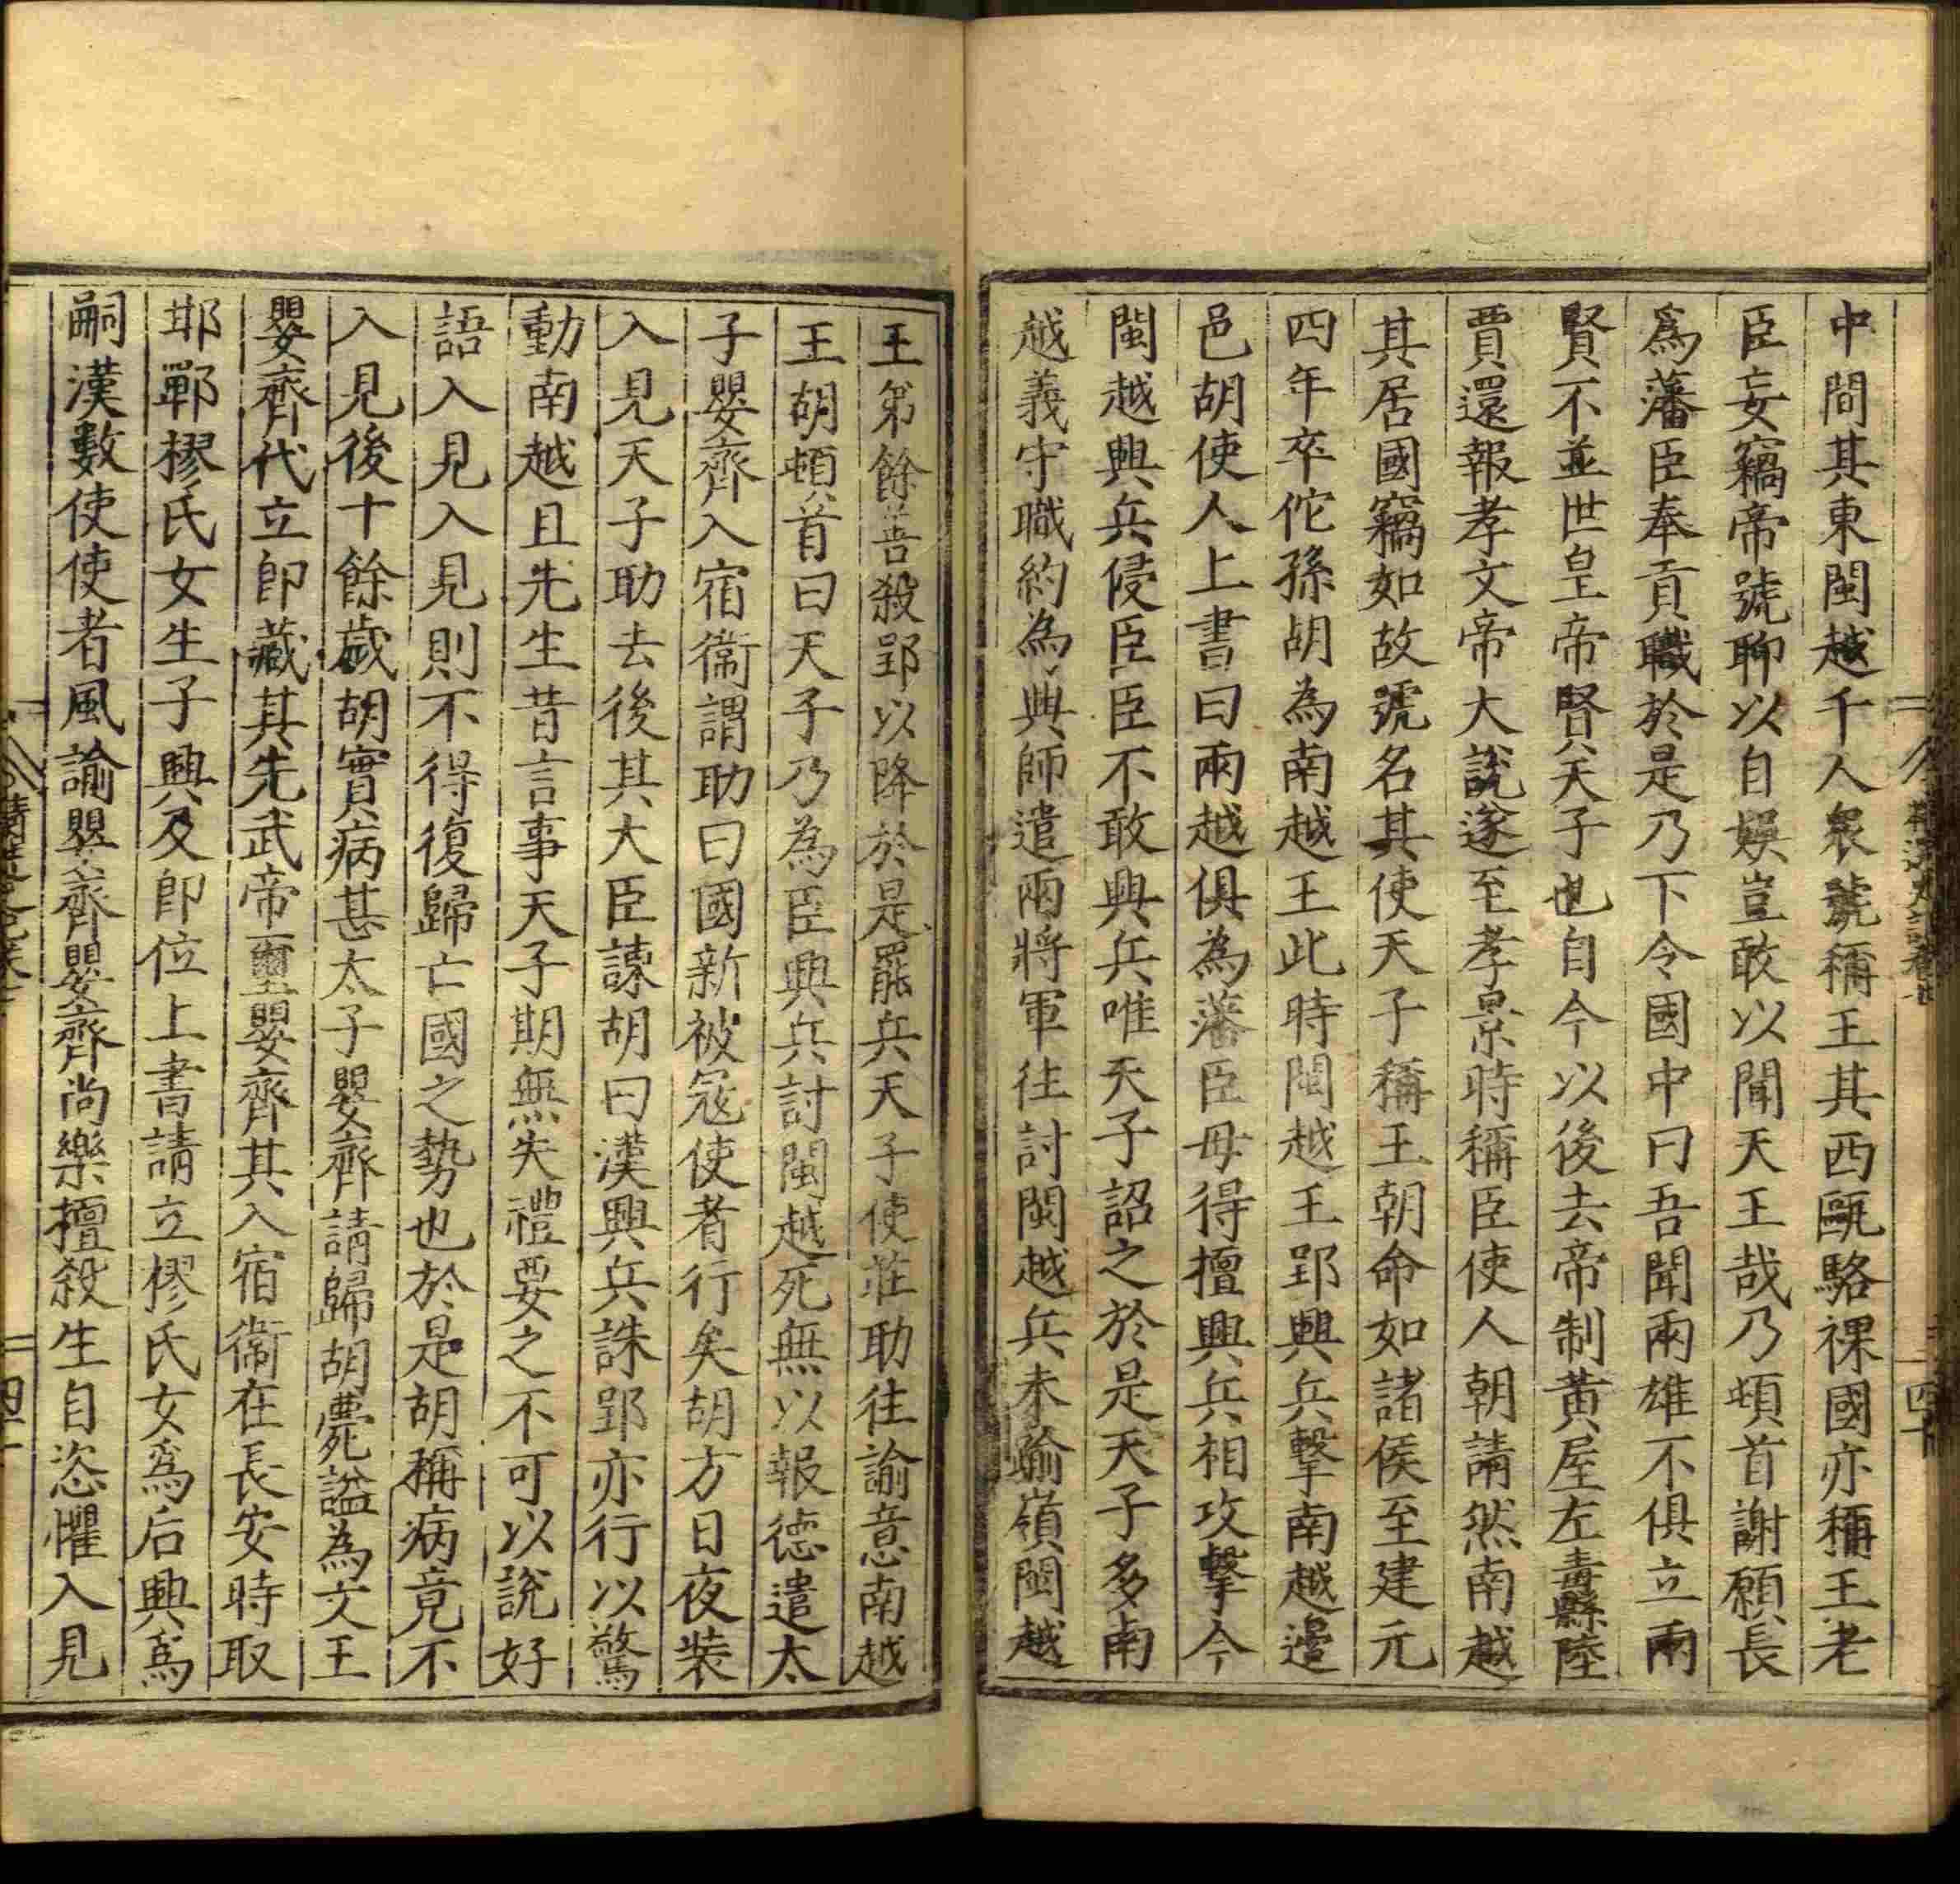 中間其東閩越千人衆號稱王其西甌駱裸國亦稱王老
臣妄竊帝號聊以自娛豈敢以聞天王哉乃頓首謝願長
爲藩臣奉貢職於是乃下令國中曰吾聞兩雄不俱立兩
賢不並世皇帝賢天子也自今以後去帝制黃屋左纛陸
賈還報孝文帝大說遂至孝景時稱臣使人朝請然南越
其居國竊如故號名其使天子稱王朝命如諸侯至建元
四年卒佗孫胡為南越王此時閩越王郢興兵擊南越邊
邑胡使人上書曰兩越俱為藩臣毋得擅興兵相攻擊今
閩越興兵侵臣臣不敢興兵唯天子詔之於是天子多南
越義守職約為興師遣兩將軍往討閩越兵未踰嶺閩越
王弟餘善殺郢以降於是罷兵天子使莊助往諭意南越
王胡頓首曰天子乃為臣興兵討閩越死無以報徳遣太
子嬰齊入宿衞謂助曰國新被寇使者行矣胡方日夜裝
入見天子助去後其大臣諫胡曰漢興兵誅郢亦行以驚
動南越且先生昔言事天子期無失禮要之不可以說好
語入見入見則不得復歸亡國之勢也於是胡稱病竟不
入見後十餘歲胡實病甚太子嬰齊請歸胡薨謚為文王
嬰齊代立卽藏其先武帝璽嬰齊其入宿衞在長安時取
邯鄲樛氏女生子興及卽位上書請立樛氏女爲后興爲
嗣漢數使使者風諭嬰齊嬰齊尚樂擅殺生自恣懼入見